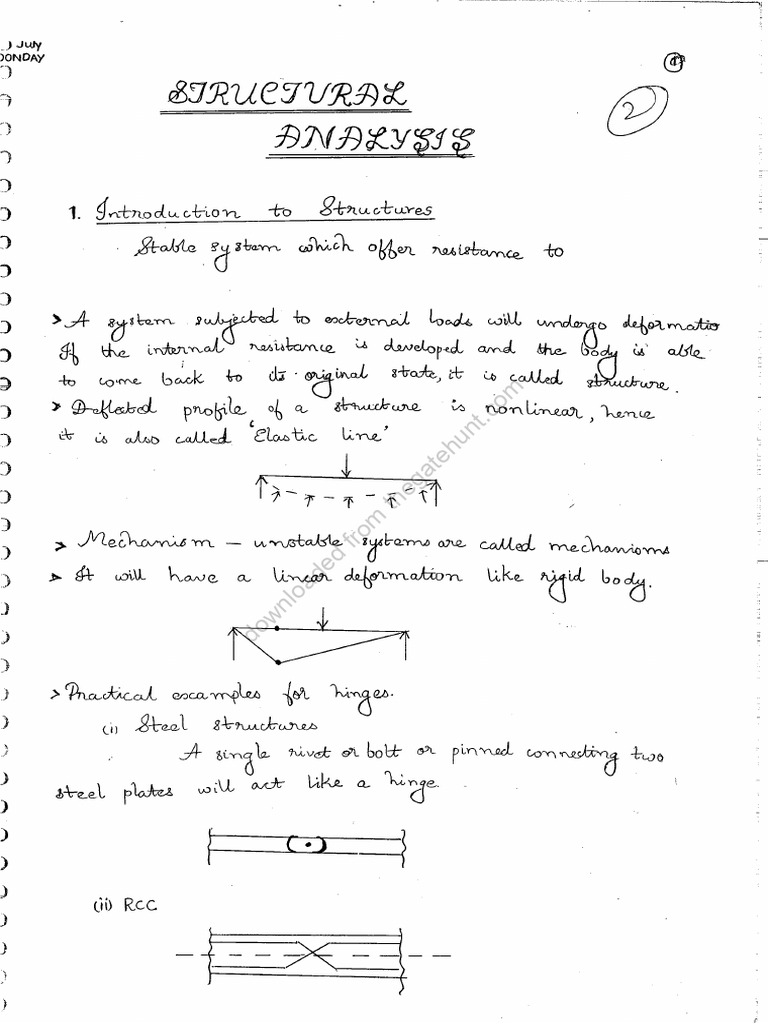 July
STRUCTURAL
2
ANALYSIS
1. Introduction to Structures
Stable system which offer resistance to
> A system subjected to external loads will undergo deformatio
If the internal resistance is developed and the body is able
to come back to its original state, it is called structure.
> Deflected profile of a structure is nonlinear, hence
it is also called 'Elastic line'
> Mechanism – unstable systems are called mechanisms
> It will have a linear deformation like rigid body.
> Practical examples for hinges.
(i) Steel structures
A single rivet or bolt or pinned connecting two
steel plates will act like a hinge.
(ii) RCC
downloaded from thegatehunt.com